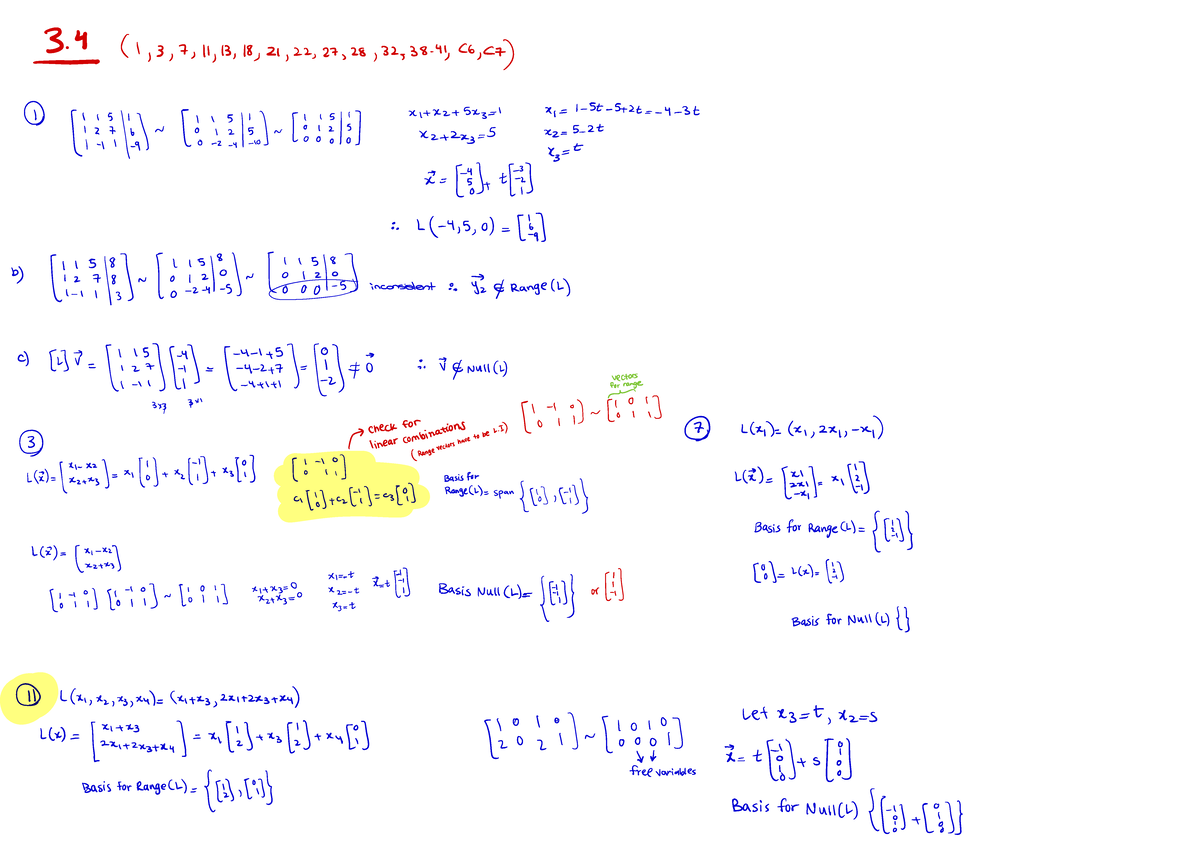 3.4 (1, 3, 7, 11, 13, 18, 21, 22, 27, 28, 32, 38-41, C6, C7)
① [1 1 5 | 1; 1 2 7 | 6; 1 -1 1 | -9] ~ [1 1 5 | 1; 0 1 2 | 5; 0 -2 -4 | -10] ~ [1 1 5 | 1; 0 1 2 | 5; 0 0 0 | 0]
x₁+x₂+5x₃=1
x₂+2x₃=5
x₁ = 1-5t-5+2t = -4-3t
x₂ = 5-2t
x₃ = t
x⃗ = [-4; 5; 0] + t[-3; -2; 1]
∴ L(-4,5,0) = [1; 6; -9]
b) [1 1 5 | 8; 1 2 7 | 8; 1 -1 1 | 3] ~ [1 1 5 | 8; 0 1 2 | 0; 0 -2 -4 | -5] ~ [1 1 5 | 8; 0 1 2 | 0; 0 0 0 | -5] ∴ y⃗₂ ∉ Range(L)
c) [L]v⃗ = [1 1 5; 1 2 7; 1 -1 1] [-4; -1; 1] = [-4-1+5; -4-2+7; -4+1+1] = [0; 1; -2] ≠ 0⃗ ∴ v⃗ ∉ Null(L)
3x3 3x1
③
L(x⃗) = [x₁-x₂; x₂+x₃] = x₁[1; 0] + x₂[-1; 1] + x₃[0; 1]
[1 -1 0; 0 1 1]
c₁[1; 0] + c₂[-1; 1] = c₃[0; 1]
→ check for
linear combinations
(Range vectors have to be L.I)
[1 -1 0; 0 1 1] ~ [1 0 1; 0 1 1]
vectors
for range
Basis for
Range(L) = span {[1; 0], [-1; 1]}
L(x⃗) = [x₁-x₂; x₂+x₃]
[1 -1 0; 0 1 1] [1 -1 0; 0 1 1] ~ [1 0 1; 0 1 1]
x₁+x₃=0
x₂+x₃=0
x₁=-t
x₂=-t
x₃=t
x⃗=t[-1; -1; 1]
Basis Null(L) = {[-1; -1; 1]} or [1; 1; -1]
⑦ L(x₁) = (x₁, 2x₁, -x₁)
L(x⃗) = [x₁; 2x₁; -x₁] = x₁[1; 2; -1]
Basis for Range(L) = {[1; 2; -1]}
[0; 0] = L(x) = [1; 2; -1]
Basis for Null(L) { }
⑪ L(x₁, x₂, x₃, x₄) = (x₁+x₃, 2x₁+2x₃+x₄)
L(x) = [x₁+x₃; 2x₁+2x₃+x₄] = x₁[1; 2] + x₃[1; 2] + x₄[0; 1]
Basis for Range(L) = {[1; 2], [0; 1]}
[1 0 1 0; 2 0 2 1] ~ [1 0 1 0; 0 0 0 1]
free variables
Let x₃=t, x₂=s
x⃗ = t[-1; 0; 1; 0] + s[0; 1; 0; 0]
Basis for Null(L) {[-1; 0; 1; 0] + [0; 1; 0; 0]}